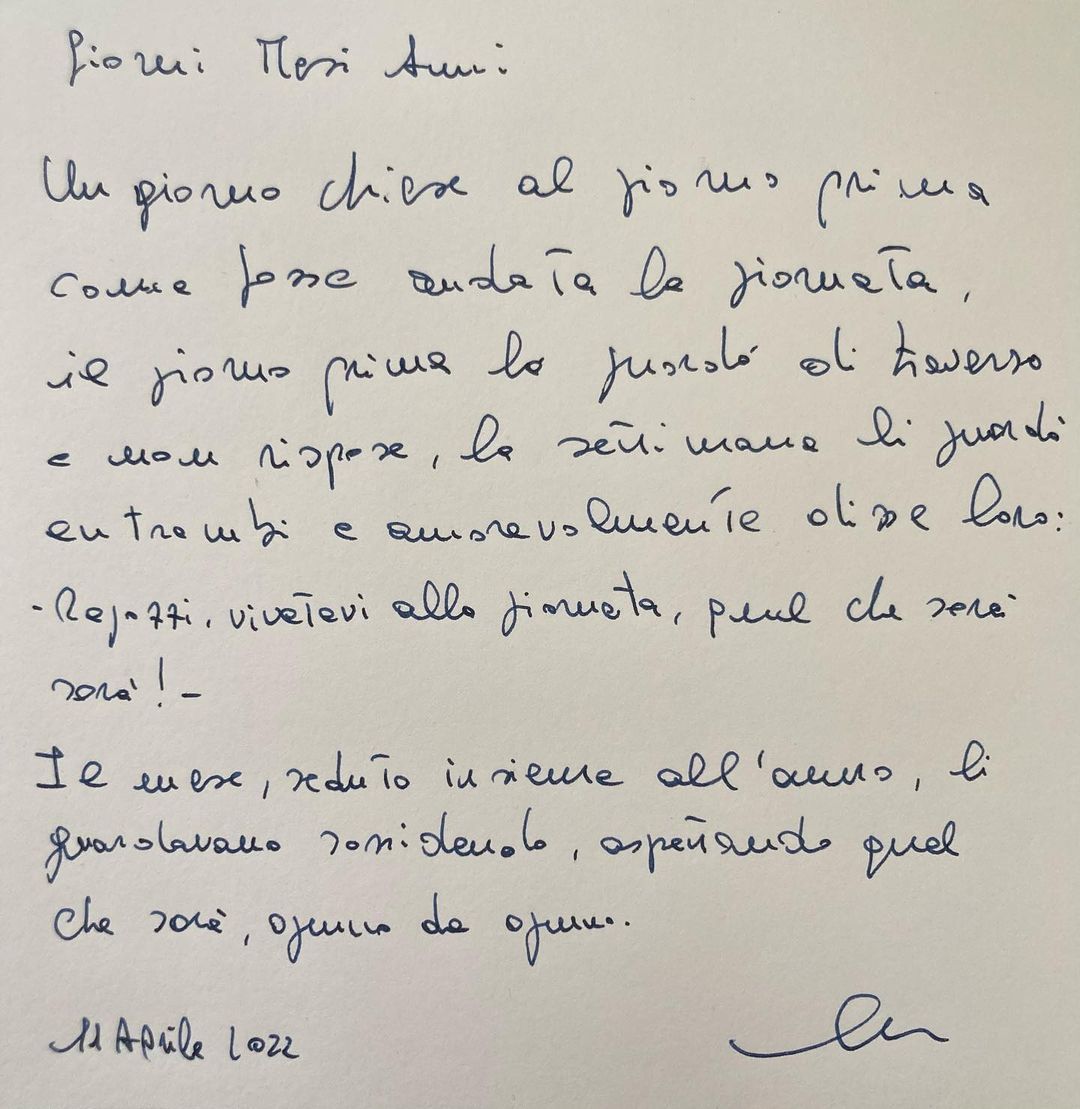 Giorni Mesi Anni
Un giorno chiese al giorno prima
come fosse andata la giornata,
il giorno prima lo guardò di traverso
e non rispose, la settimana li guardò
entrambi e amorevolmente disse loro:
- Ragazzi, vivetevi alla giornata, quel che sarà
sarà! -
Il mese, seduto insieme all'anno, li
guardavano sorridendo, aspettando quel
che sarà, ognuno da ognuno.
11 Aprile 2022